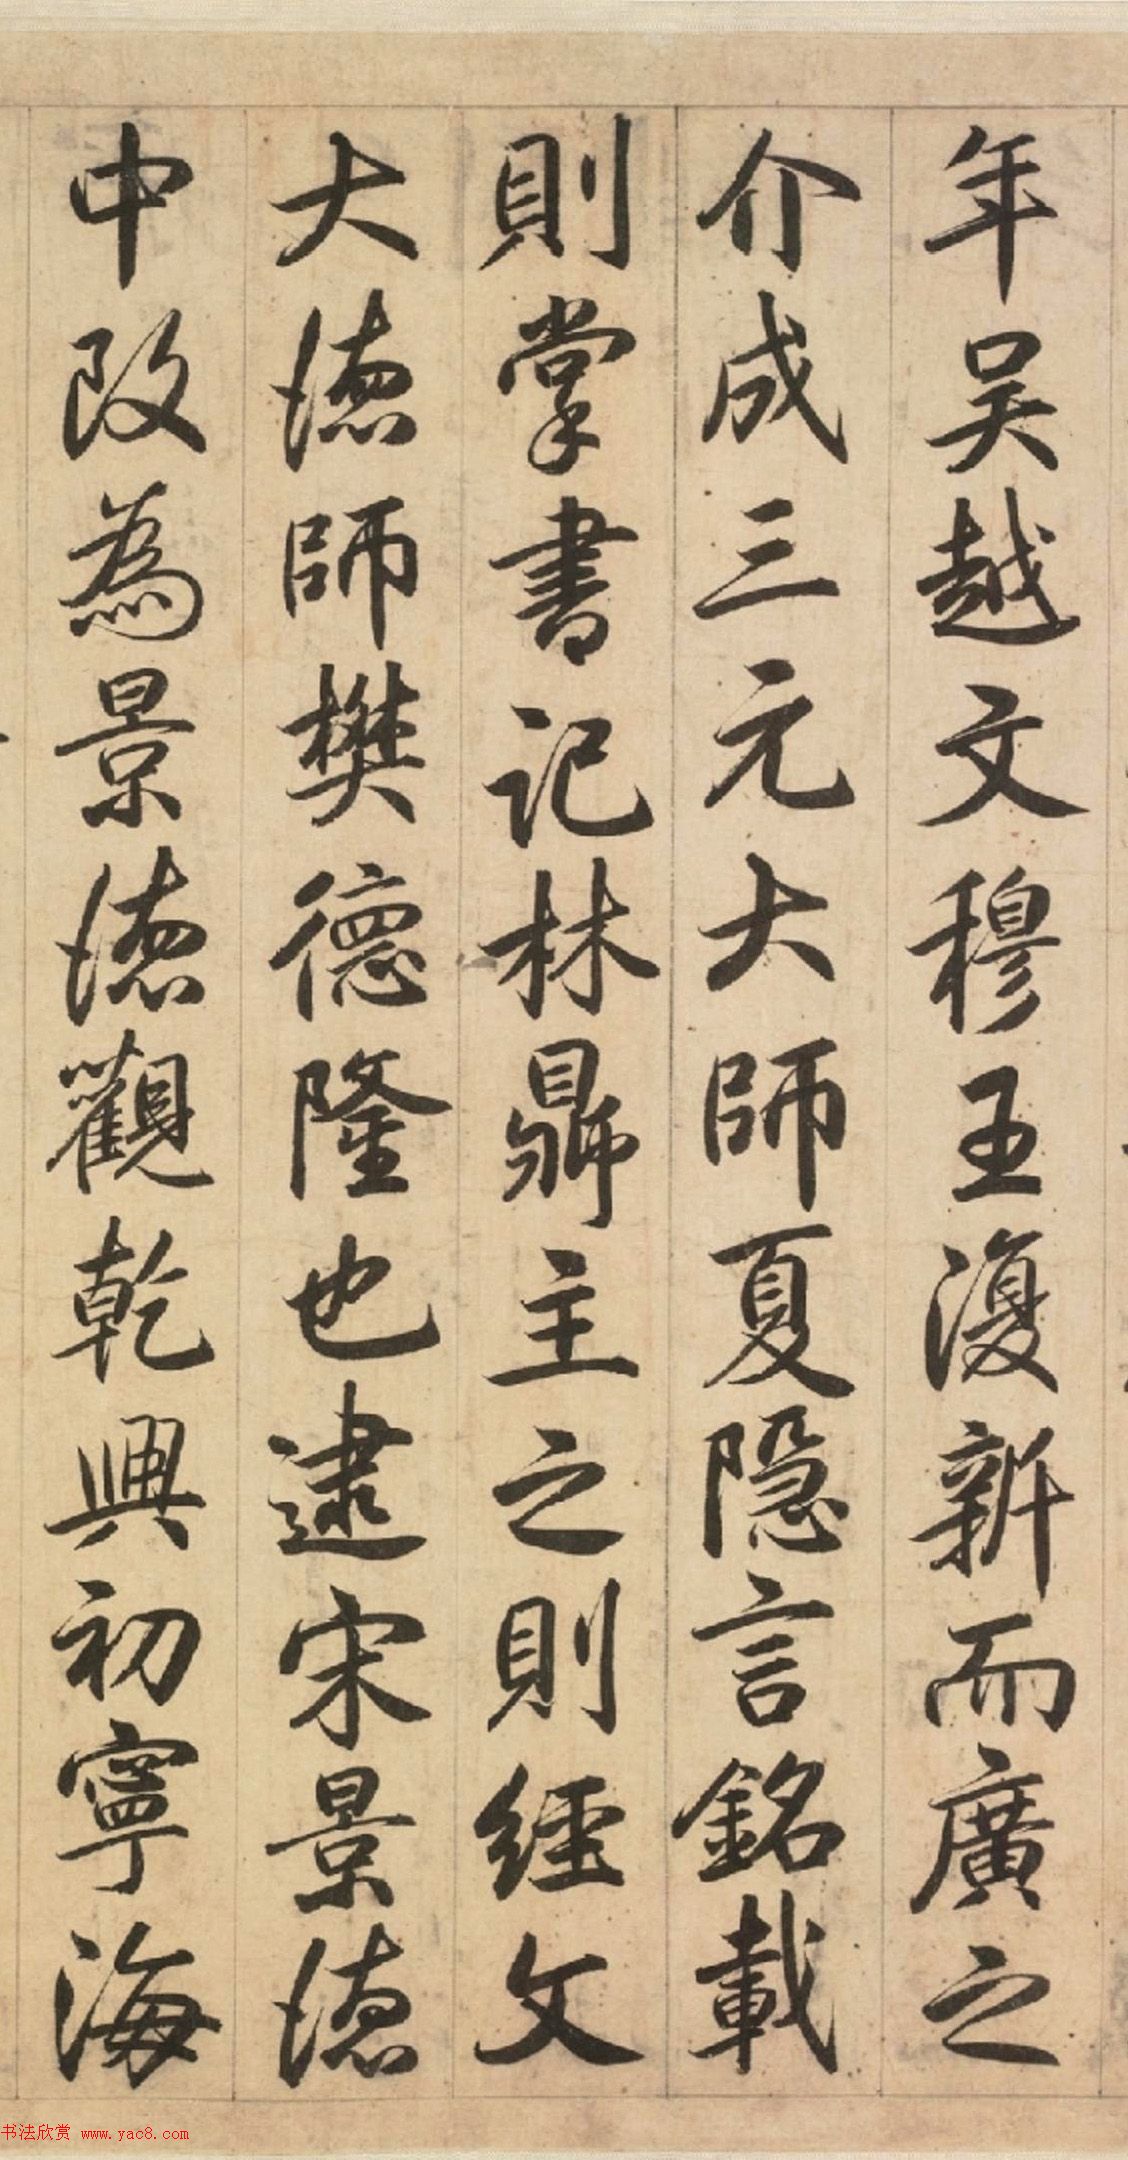 年吳越文穆王復新而廣之
介成三元大師夏隱言銘載
則掌書記林鼎主之則經文
大德師樊德隆也逮宋景德
中改為景德觀乾興初寧海
书法欣赏 www.yac8.com